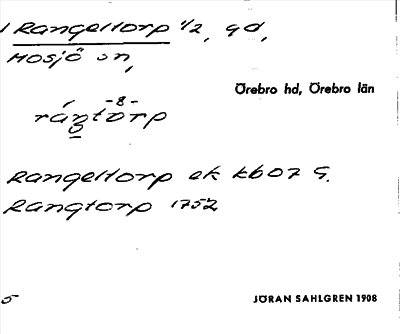 1 Rangeltorp 1/2, gd,
Mosjö sn,
Örebro hd, Örebro län
-8-
Rangeltorp ek kb 07 G.
Rangtorp 1752
5 JÖRAN SAHLGREN 1908